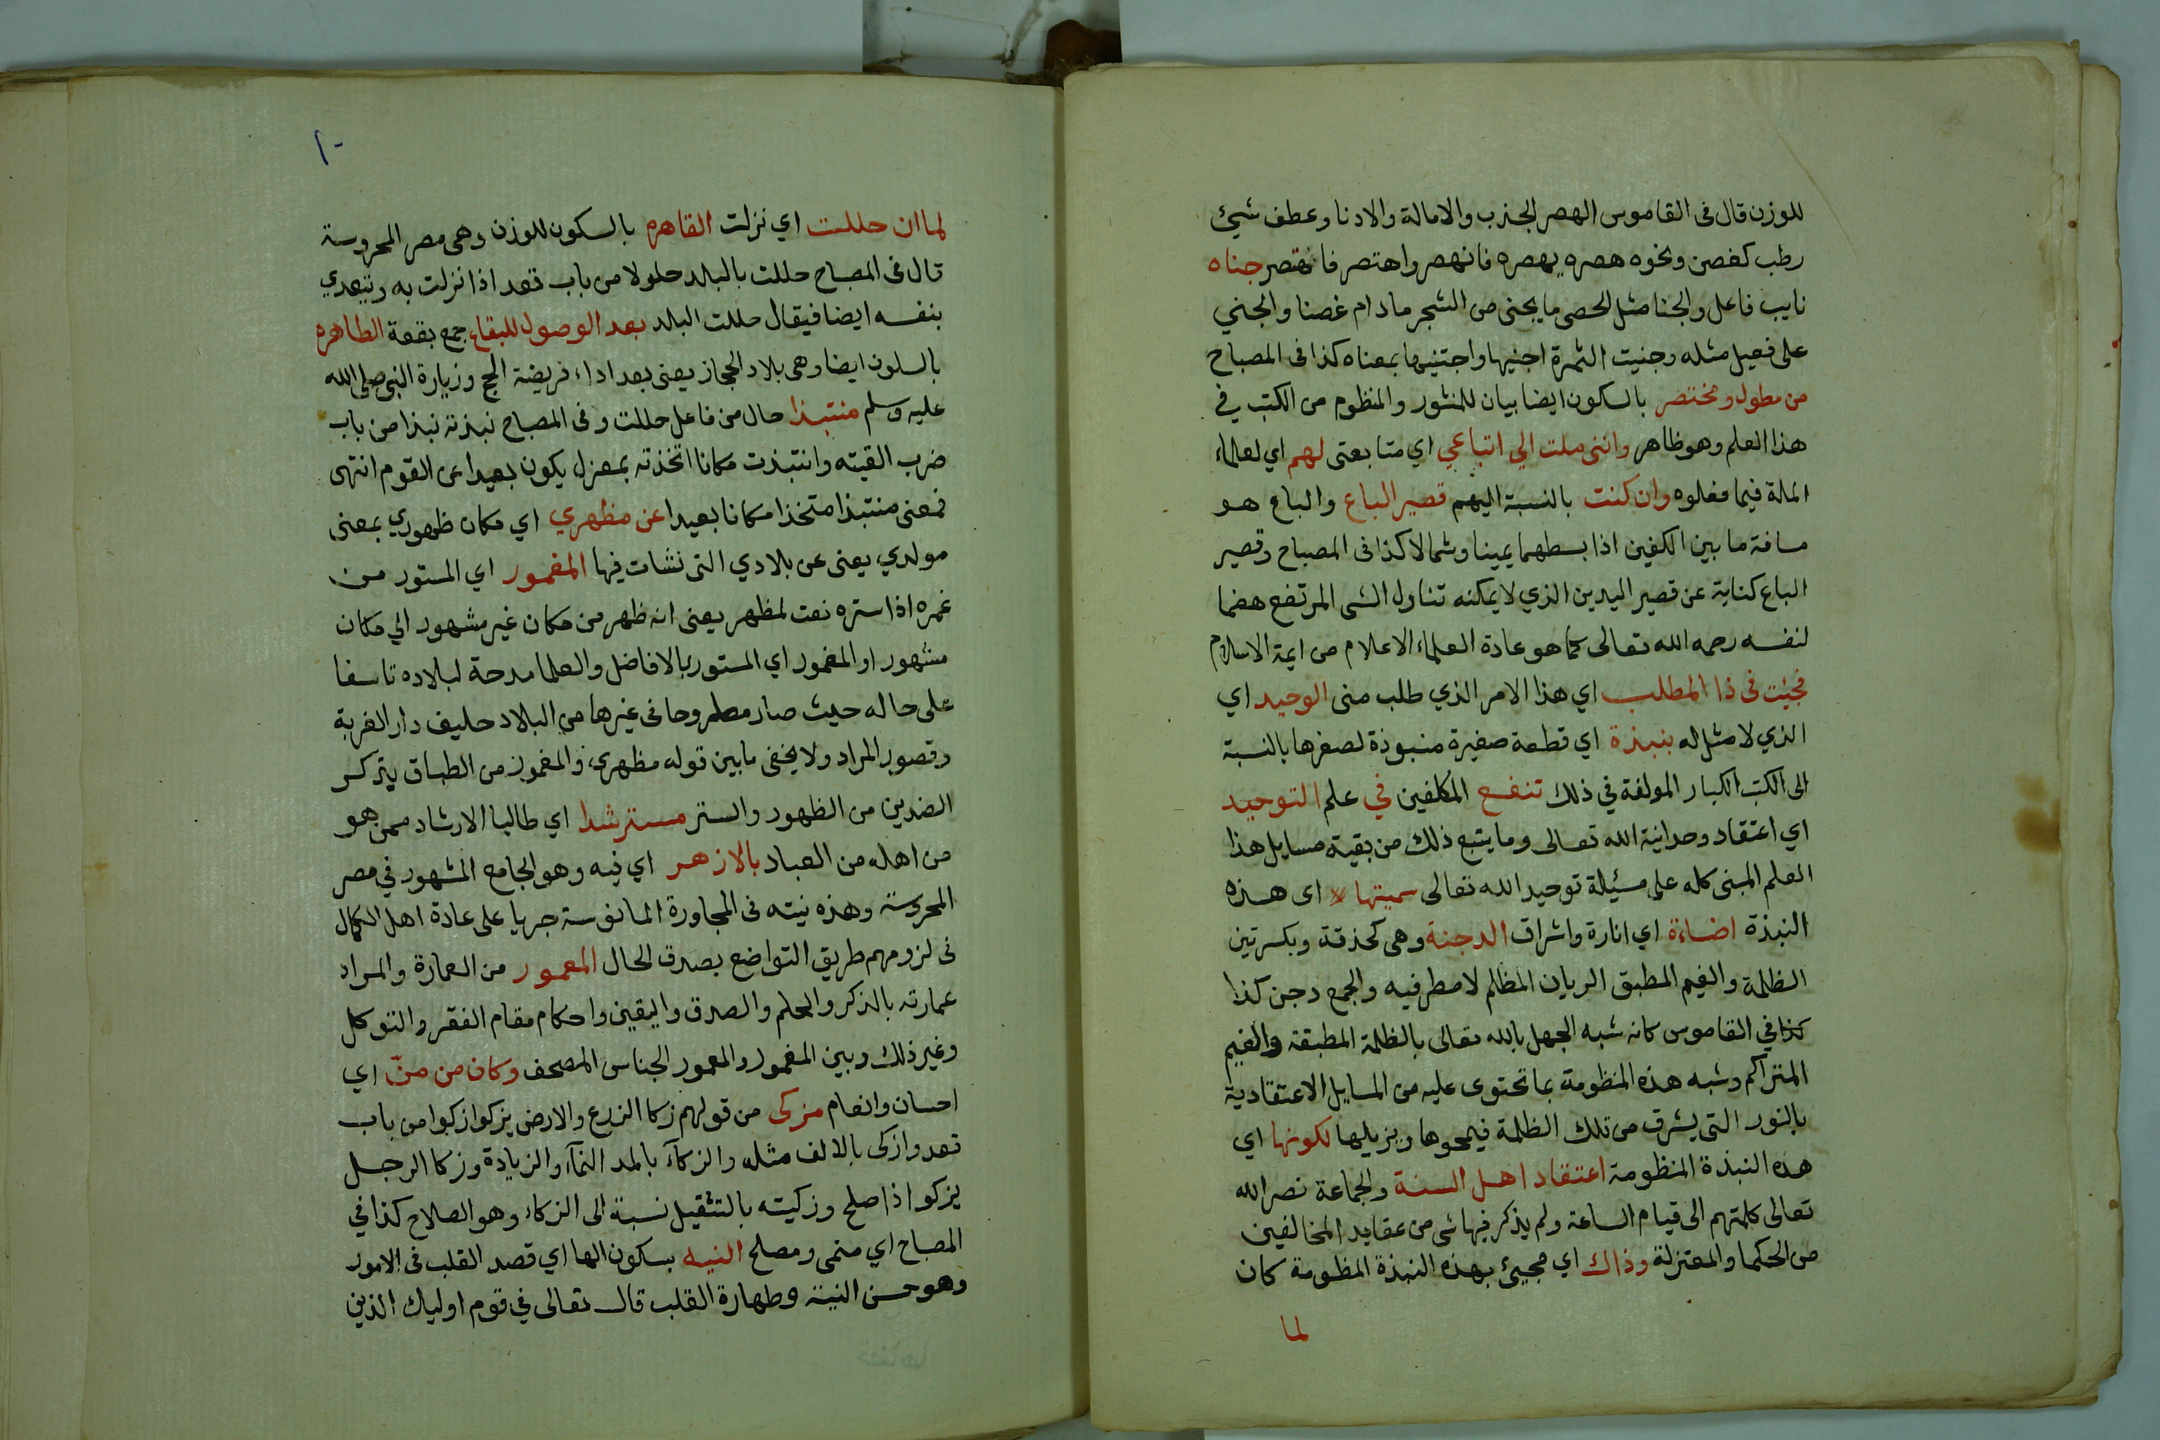 للوزن قال فى القاموس الهصر الجذب والامالة والادنا وعطف شيئ
رطب كغصن ونحوه هصره يهصره فانهصر واهتصر فاهتصر جناه
نايب فاعل والجنا مثل الحصى ما يجنى من الشجر مادام غصنا والجني
على فعيل مثله وجنيت الثمرة اجنيها واجتنيها بمعناه كذا فى المصباح
من مطول ومختصر بالسكون ايضا بيان للمنثور والمنظوم من الكتب في
هذا العلم وهو ظاهر وانني ملت الي اتباعي اي متابعتى لهم اي لعلماء
الملة فيما فعلوه وان كنت بالنسبة اليهم قصير الباع والباع هو
مسافة ما بين الكفين اذا بسطهما يمينا وشمالا كذا فى المصباح وقصير
الباع كناية عن قصير اليدين الذي لا يمكنه تناول الشى المرتفع هضما
لنفسه رحمه الله تعالى كما هو عادة العلماء الاعلام من ايمة الاسلام
فجئت فى ذا المطلب اي هذا الامر الذي طلب منى الوحيد اي
الذي لا مثل له بنبذة اي قطعة صغيرة منبوذة لصغرها بالنسبة
الى الكتب الكبار المولفة في ذلك تنفع المكلفين في علم التوحيد
اي اعتقاد وحدانية الله تعالى وما يتبع ذلك من بقية مسايل هذا
العلم المبنى كله على مسئيلة توحيد الله تعالى سميتها اى هذه
النبذة اضاءة اي انارة واشراق الدجنة وهى كحذقة وبكسرتين
الظلمة والغيم المطبق الريان المظلم لا مطر فيه والجمع دجن كذا
كذا في القاموس كانه شبه الجهل بالله تعالى بالظلمة المطبقة والغيم
المتراكم وشبه هذه المنظومة بما تحتوى عليه من المسايل الاعتقادية
بالنور التى يشرق من تلك الظلمة فيمحوها ويزيلها لكونها اي
هذه النبذة المنظومة اعتقاد اهل السنة والجماعة نصر الله
تعالى كلمتهم الى قيام الساعة ولم يذكر فيها شى من عقايد المخالفين
من الحكما والمعتزلة وذاك اي مجيئ بهذه النبذة المظومة كان
لما
١٠
لما ان حللت اي نزلت القاهره بالسكون للوزن وهى مصر المحروسة
قال فى المصباح حللت بالبلد حلولا من باب قعد اذا نزلت به ويتعدي
بنفسه ايضا فيقال حللت البلد بعد الوصول للبقاع جمع بقعة الطاهره
بالسلون ايضا وهى بلاد الحجاز يعنى بعد اداء فريضة الحج وزيارة النبى صلى الله
عليه وسلم منتبذا حال من فاعل حللت وفى المصباح نبذته نبذا من باب
ضرب القيته وانتبذت مكانا اتخذته بمعزل يكون بعيدا عن القوم انتهى
فمعنى منتبذا متخذا مكانا بعيدا عن مظهري اي مكان ظهوري بمعنى
مولدي يعنى عن بلادي التى نشات فيها المغمور اي المستور من
غمره اذا ستره نعت لمظهر يعنى انه ظهر من مكان غير مشهور الي مكان
مشهور او المغمور اي المستور بالافاضل والعلما مدحة لبلاده تاسفا
على حاله حيث صار مطروحا فى غيرها من البلاد حليف دار الغربة
وقصور المراد ولا يخفى ما بين قوله مظهري والمغمور من الطباق بذكر
الضدين من الظهور والستر مسترشدا اي طالبا الارشاد ممن هو
من اهله من العباد بالازهر اي فيه وهو الجامع المشهور في مصر
المحروسة وهذه نيته فى المجاورة المانوسة جريا على عادة اهل الكمال
فى لزومهم طريق التواضع بصدق الحال المعمور من العمارة والمراد
عمارته بالذكر والعلم والصدق واليقين واحكام مقام الفقر والتوكل
وغير ذلك وبين المغمور والمعمور الجناس المصحف وكان من منّ اي
احسان وانعام مزكى من قولهم زكا الزرع والارض يزكوا زكوا من باب
قعد وازكى بالالف مثله والزكآء بالمد النمآء والزيادة وزكا الرجل
يزكو اذا صلح وزكيته بالتثقيل نسبة الى الزكاء وهو الصلاح كذا في
المصباح اي منمى ومصلح النيه بسكون الها اي قصد القلب فى الامور
وهو حسن النية وطهارة القلب قال تعالى في قوم اوليك الذين